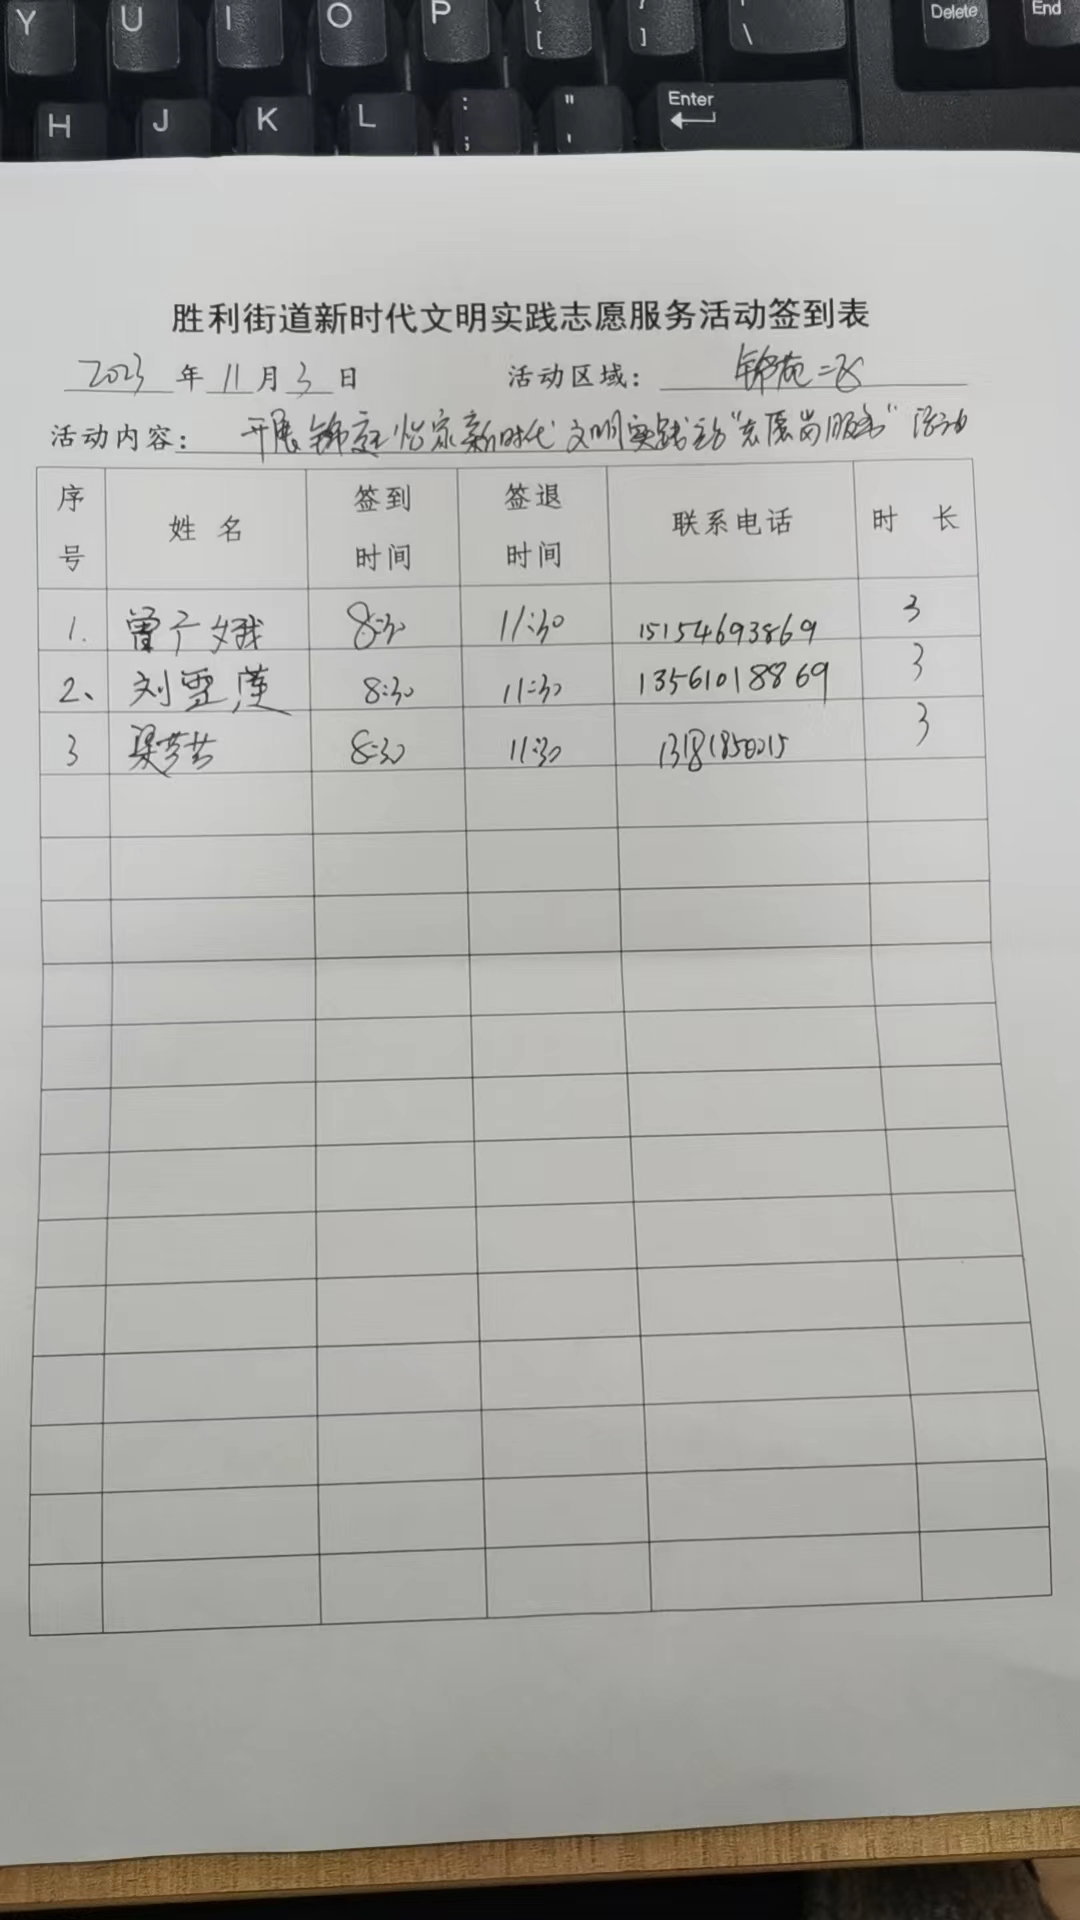 Y U I O P { [ } ] \ Delete End
H J K L : ; " ' Enter
胜利街道新时代文明实践志愿服务活动签到表
2023 年 11 月 3 日 活动区域: 锦苑二区
活动内容: 开展锦庭怡家新时代文明实践站"志愿岗服务"活动
序号 姓名 签到时间 签退时间 联系电话 时长
1. 曾广娥 8:30 11:30 15154693869 3
2、 刘雪莲 8:30 11:30 13561018869 3
3 梁芳芳 8:30 11:30 3